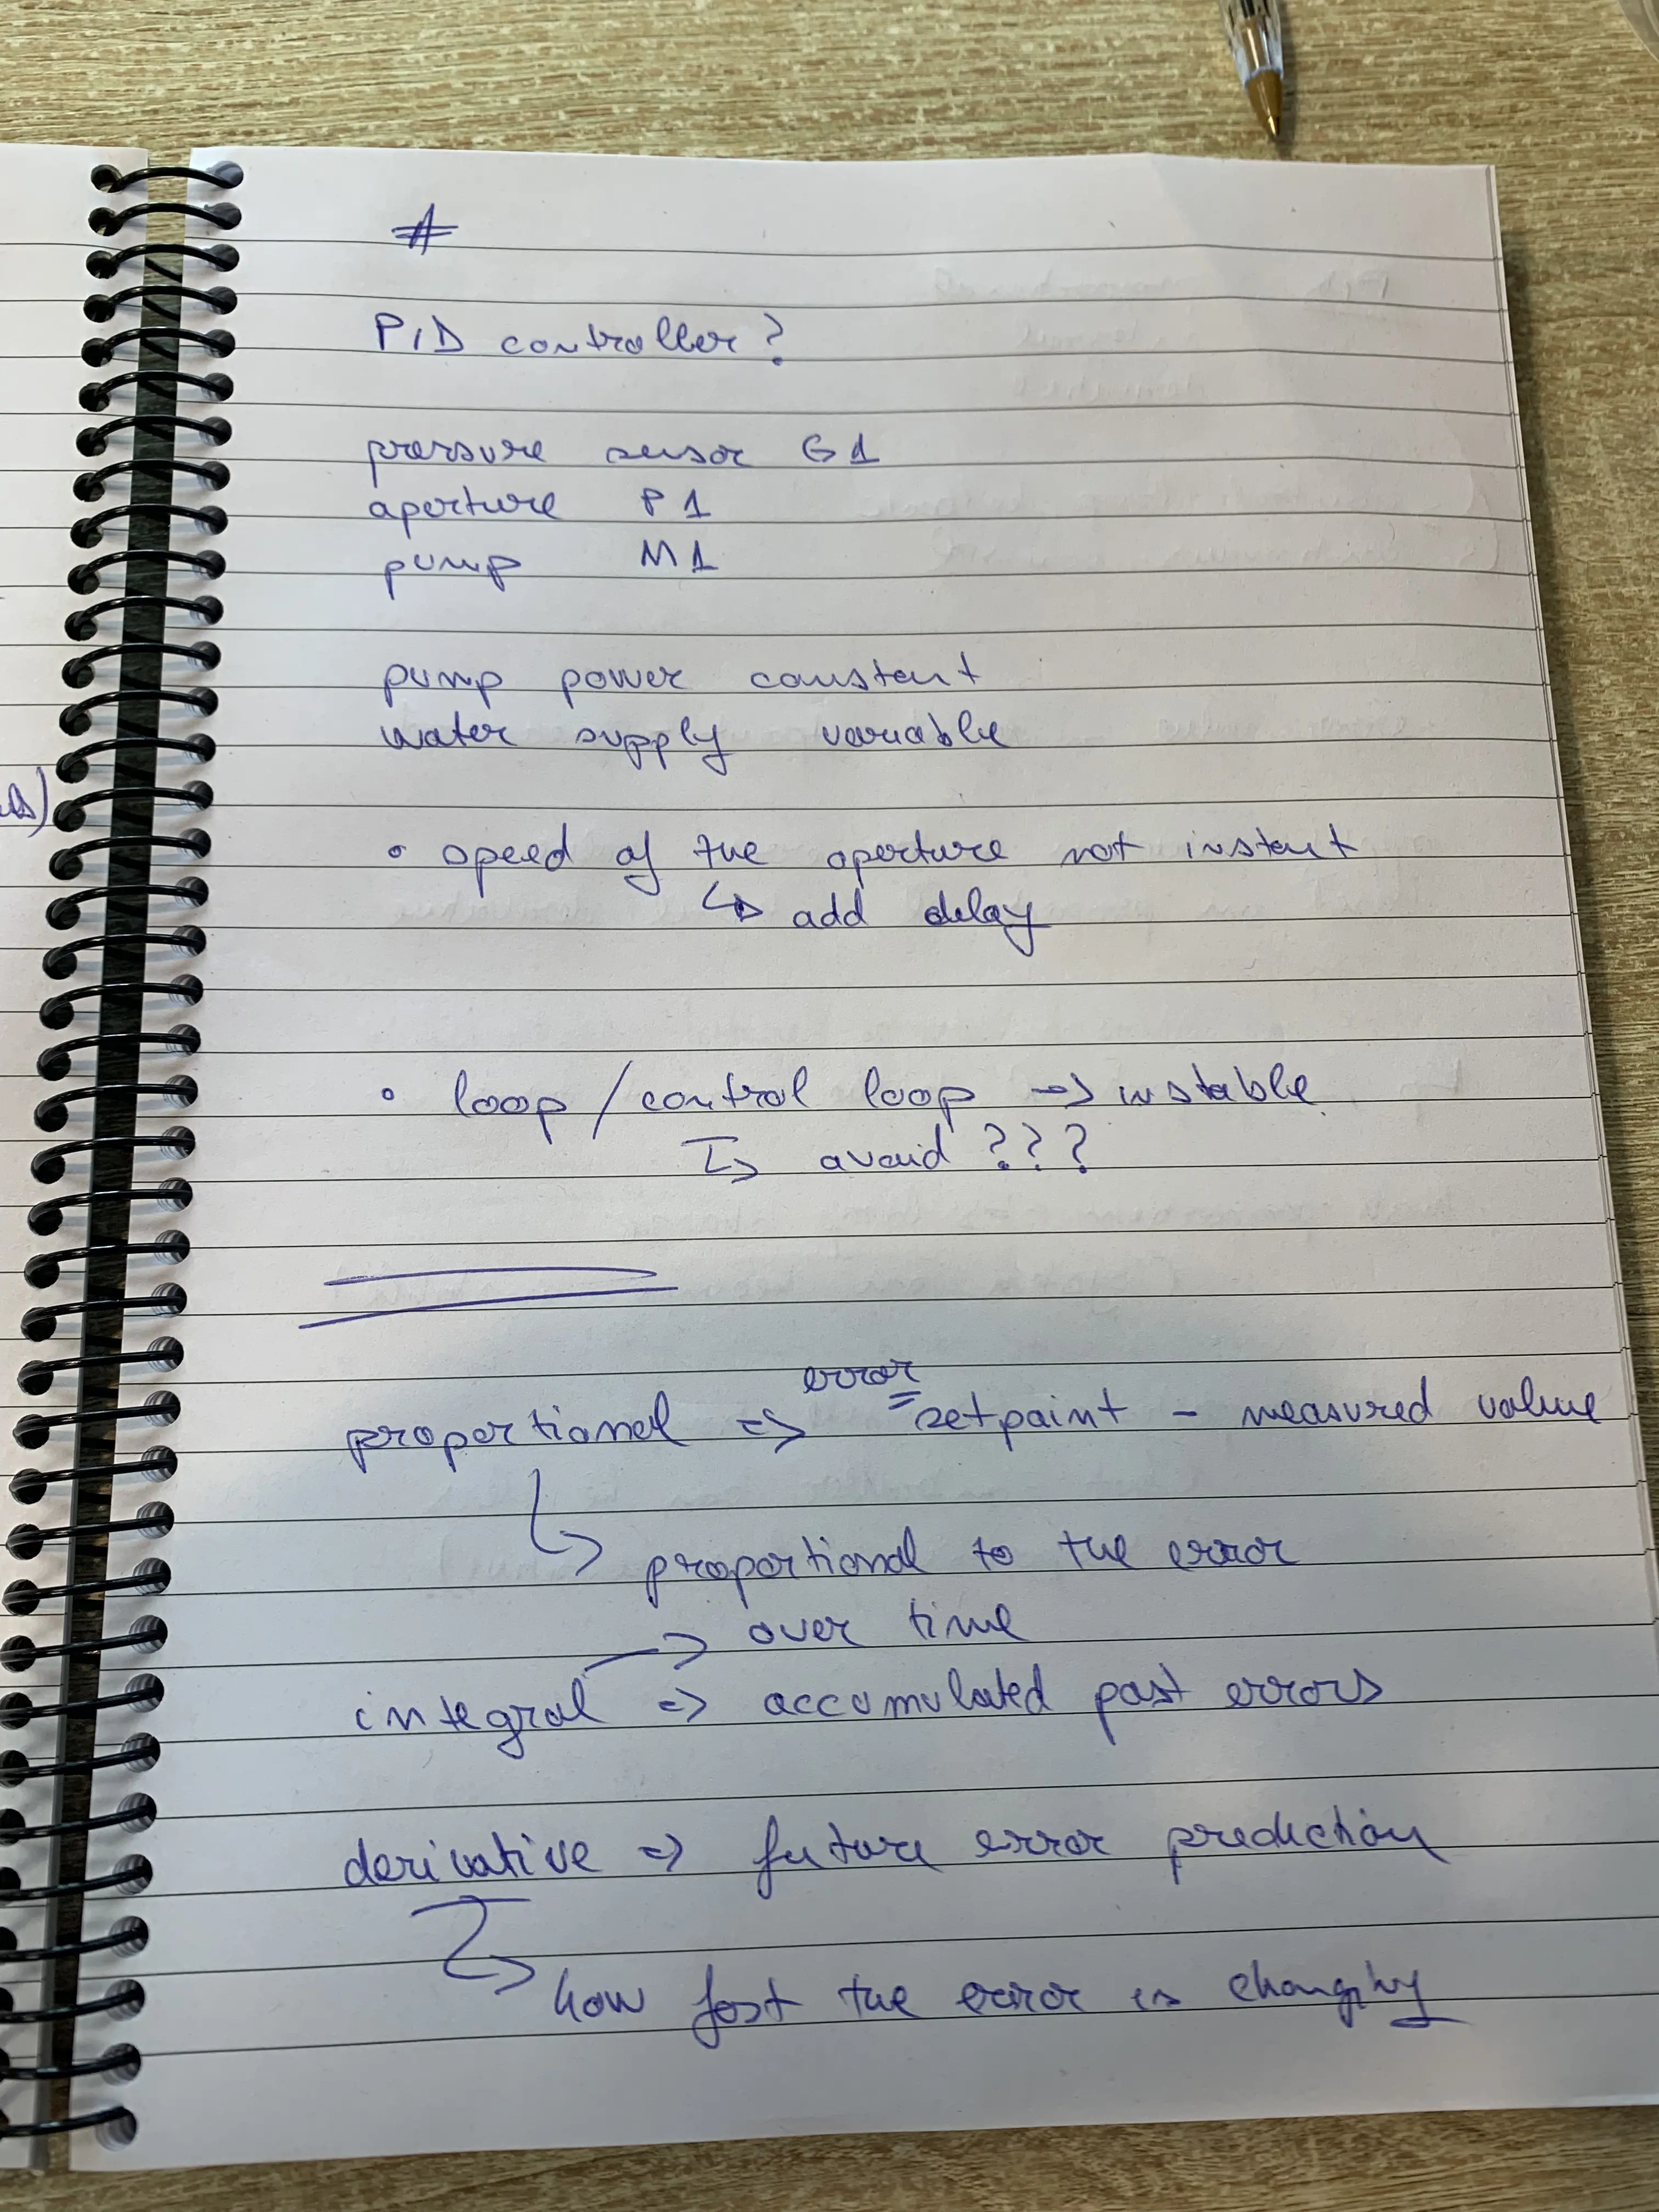 #
PID controller?
pressure sensor G1
aperture P1
pump M1
pump power constant
water supply variable
• speed of the aperture not instant
↳ add delay
• loop / control loop → instable
↳ avoid ???
error
proportional => = setpoint - measured value
↳ proportional to the error
→ over time
integral => accumulated past errors
derivative => future error prediction
↳ how fast the error is changing